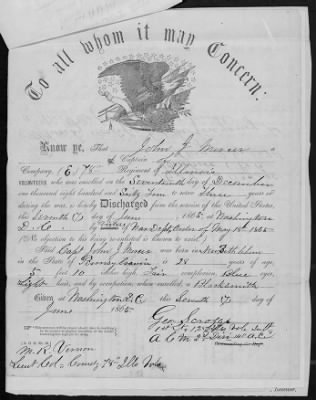 To all whom it may Concern:
Know ye, That John J. Miner a
Captain of
Company, (E.) 78th Regiment of Illinois
VOLUNTEERS who was enrolled on the Seventeenth day of December
one thousand eight hundred and Sixty Two to serve three years or
during the war, is hereby Discharged from the service of the United States,
this Seventh (7) day of June, 1865, at Washington
D.C. by reason of War Dept. Order of May 18th 1865
(No objection to his being re-enlisted is known to exist.)
Said Capt. John J. Miner was born in Bethlehem
in the State of Pennsylvania, is 28 years of age,
5 feet 10 inches high, Fair complexion, Blue eyes,
Light hair, and by occupation, when enrolled, a Blacksmith
Given at Washington D.C. this Seventh (7) day of
June 1865.
Geo Scroggs
1st Lt. 125th Ills Vols Inft
A.C.M. 2d Div. 14 A.C.
M. R. Vernon
Lieut Col. Comdg 78th Ills Vols